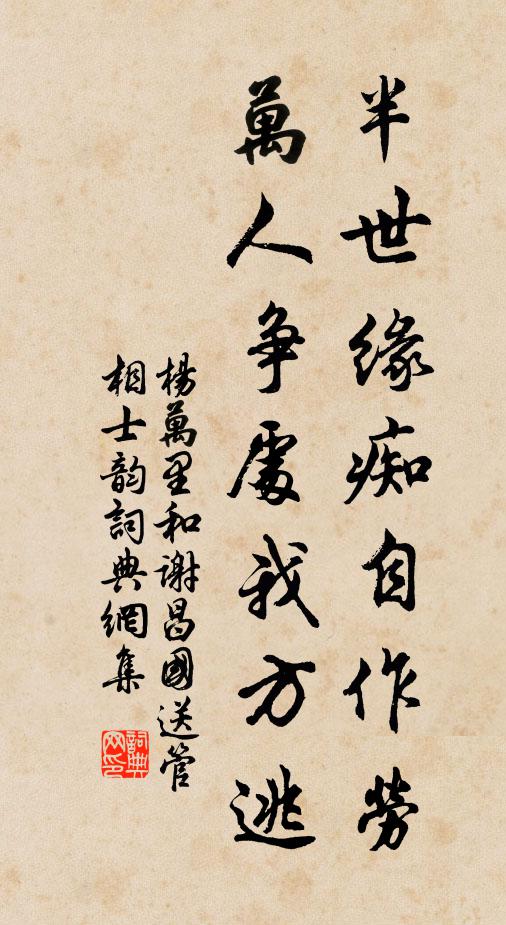 半世緣痴自作勞
萬人爭處我方逃
楊萬里和謝昌國送管
相士韵詞典網集
詞典
网印